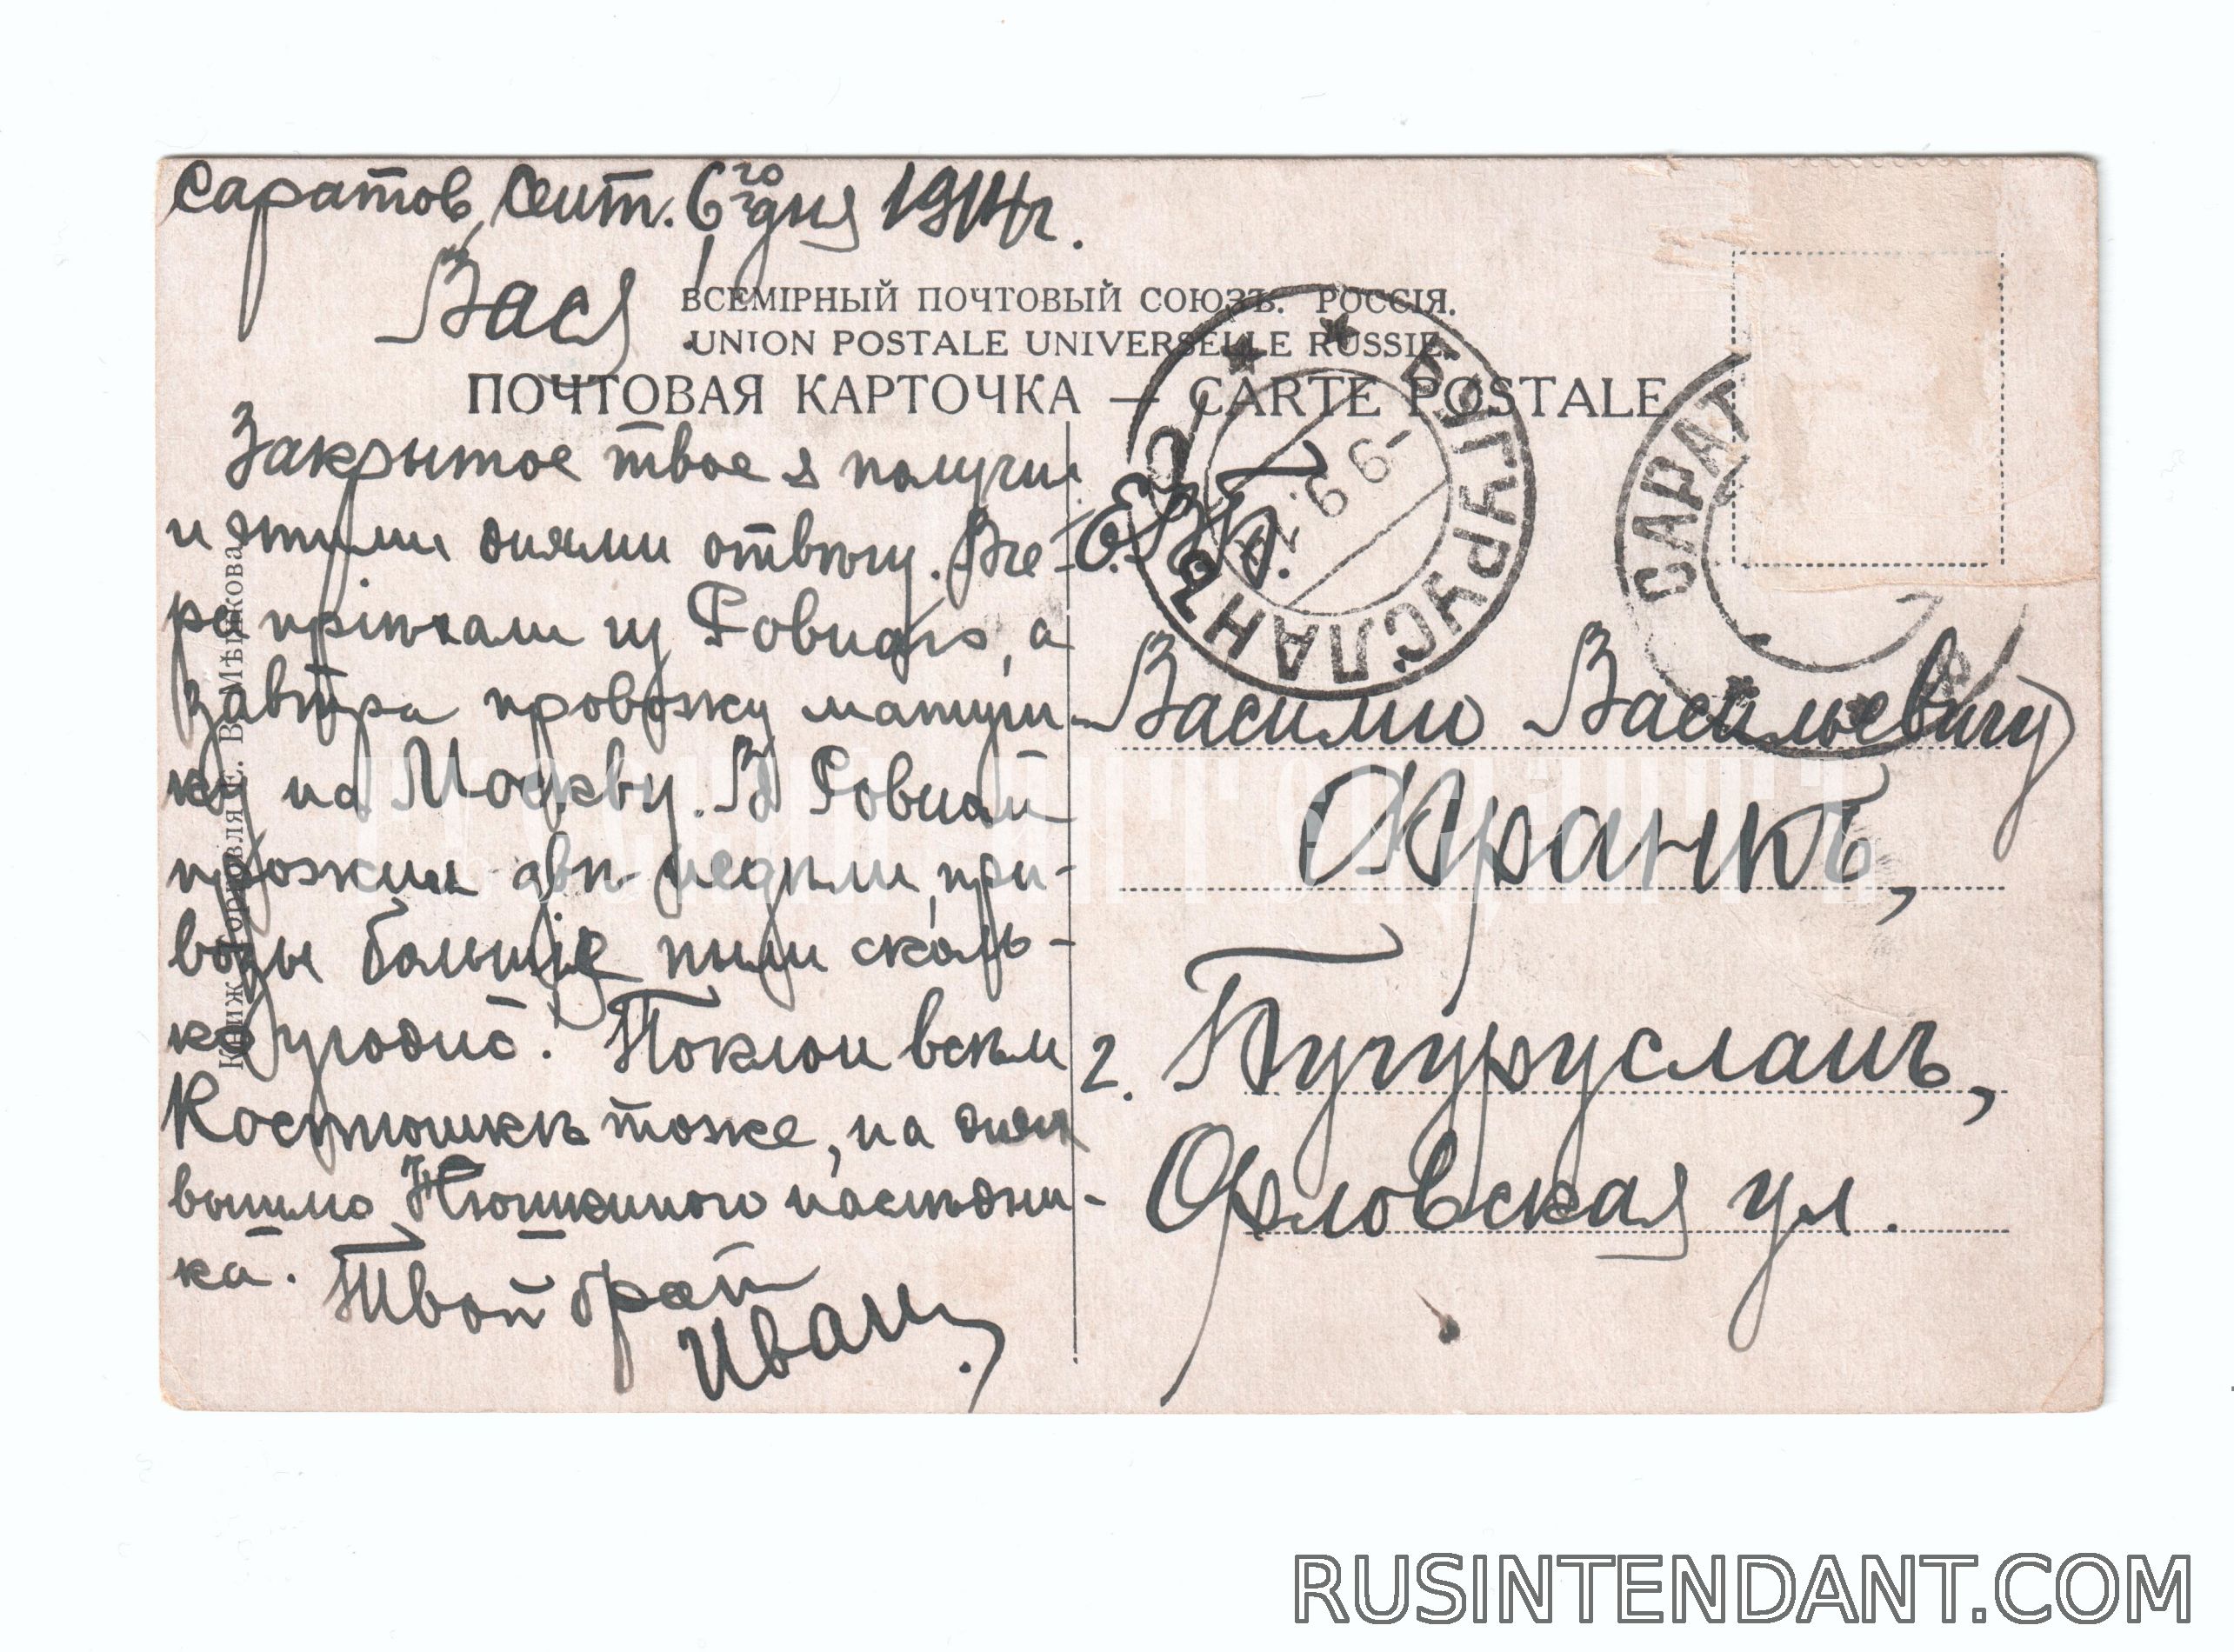 Саратов, Сент. 6го дня 1914 г.
Вася!
ВСЕМІРНЫЙ ПОЧТОВЫЙ СОЮЗЪ. РОССІЯ.
UNION POSTALE UNIVERSELLE RUSSIE.
ПОЧТОВАЯ КАРТОЧКА — CARTE POSTALE
Закрытое твое я получил
и этими днями отвѣчу. Вче-
ра пріѣхали из Ровнаго, а
завтра провожу матуш-
ку на Москву. В Ровной
прожил двѣ недѣли, при-
возы большіе, пыли сколь-
ко угодно. Поклон всѣм
Костюшкѣ тоже, на днях
вышлю Нюшкиного наслѣдни-
ка. Твой брат
Иван.
Книж. торговля Е. В. Мѣшкова
Е.В.
Василию Васильевичу
Франкъ,
г. Бугурусланъ,
Орловская ул.
БУГУРУСЛАНЪ
-9 9.14
САРАТ
RUSINTENDANT.COM